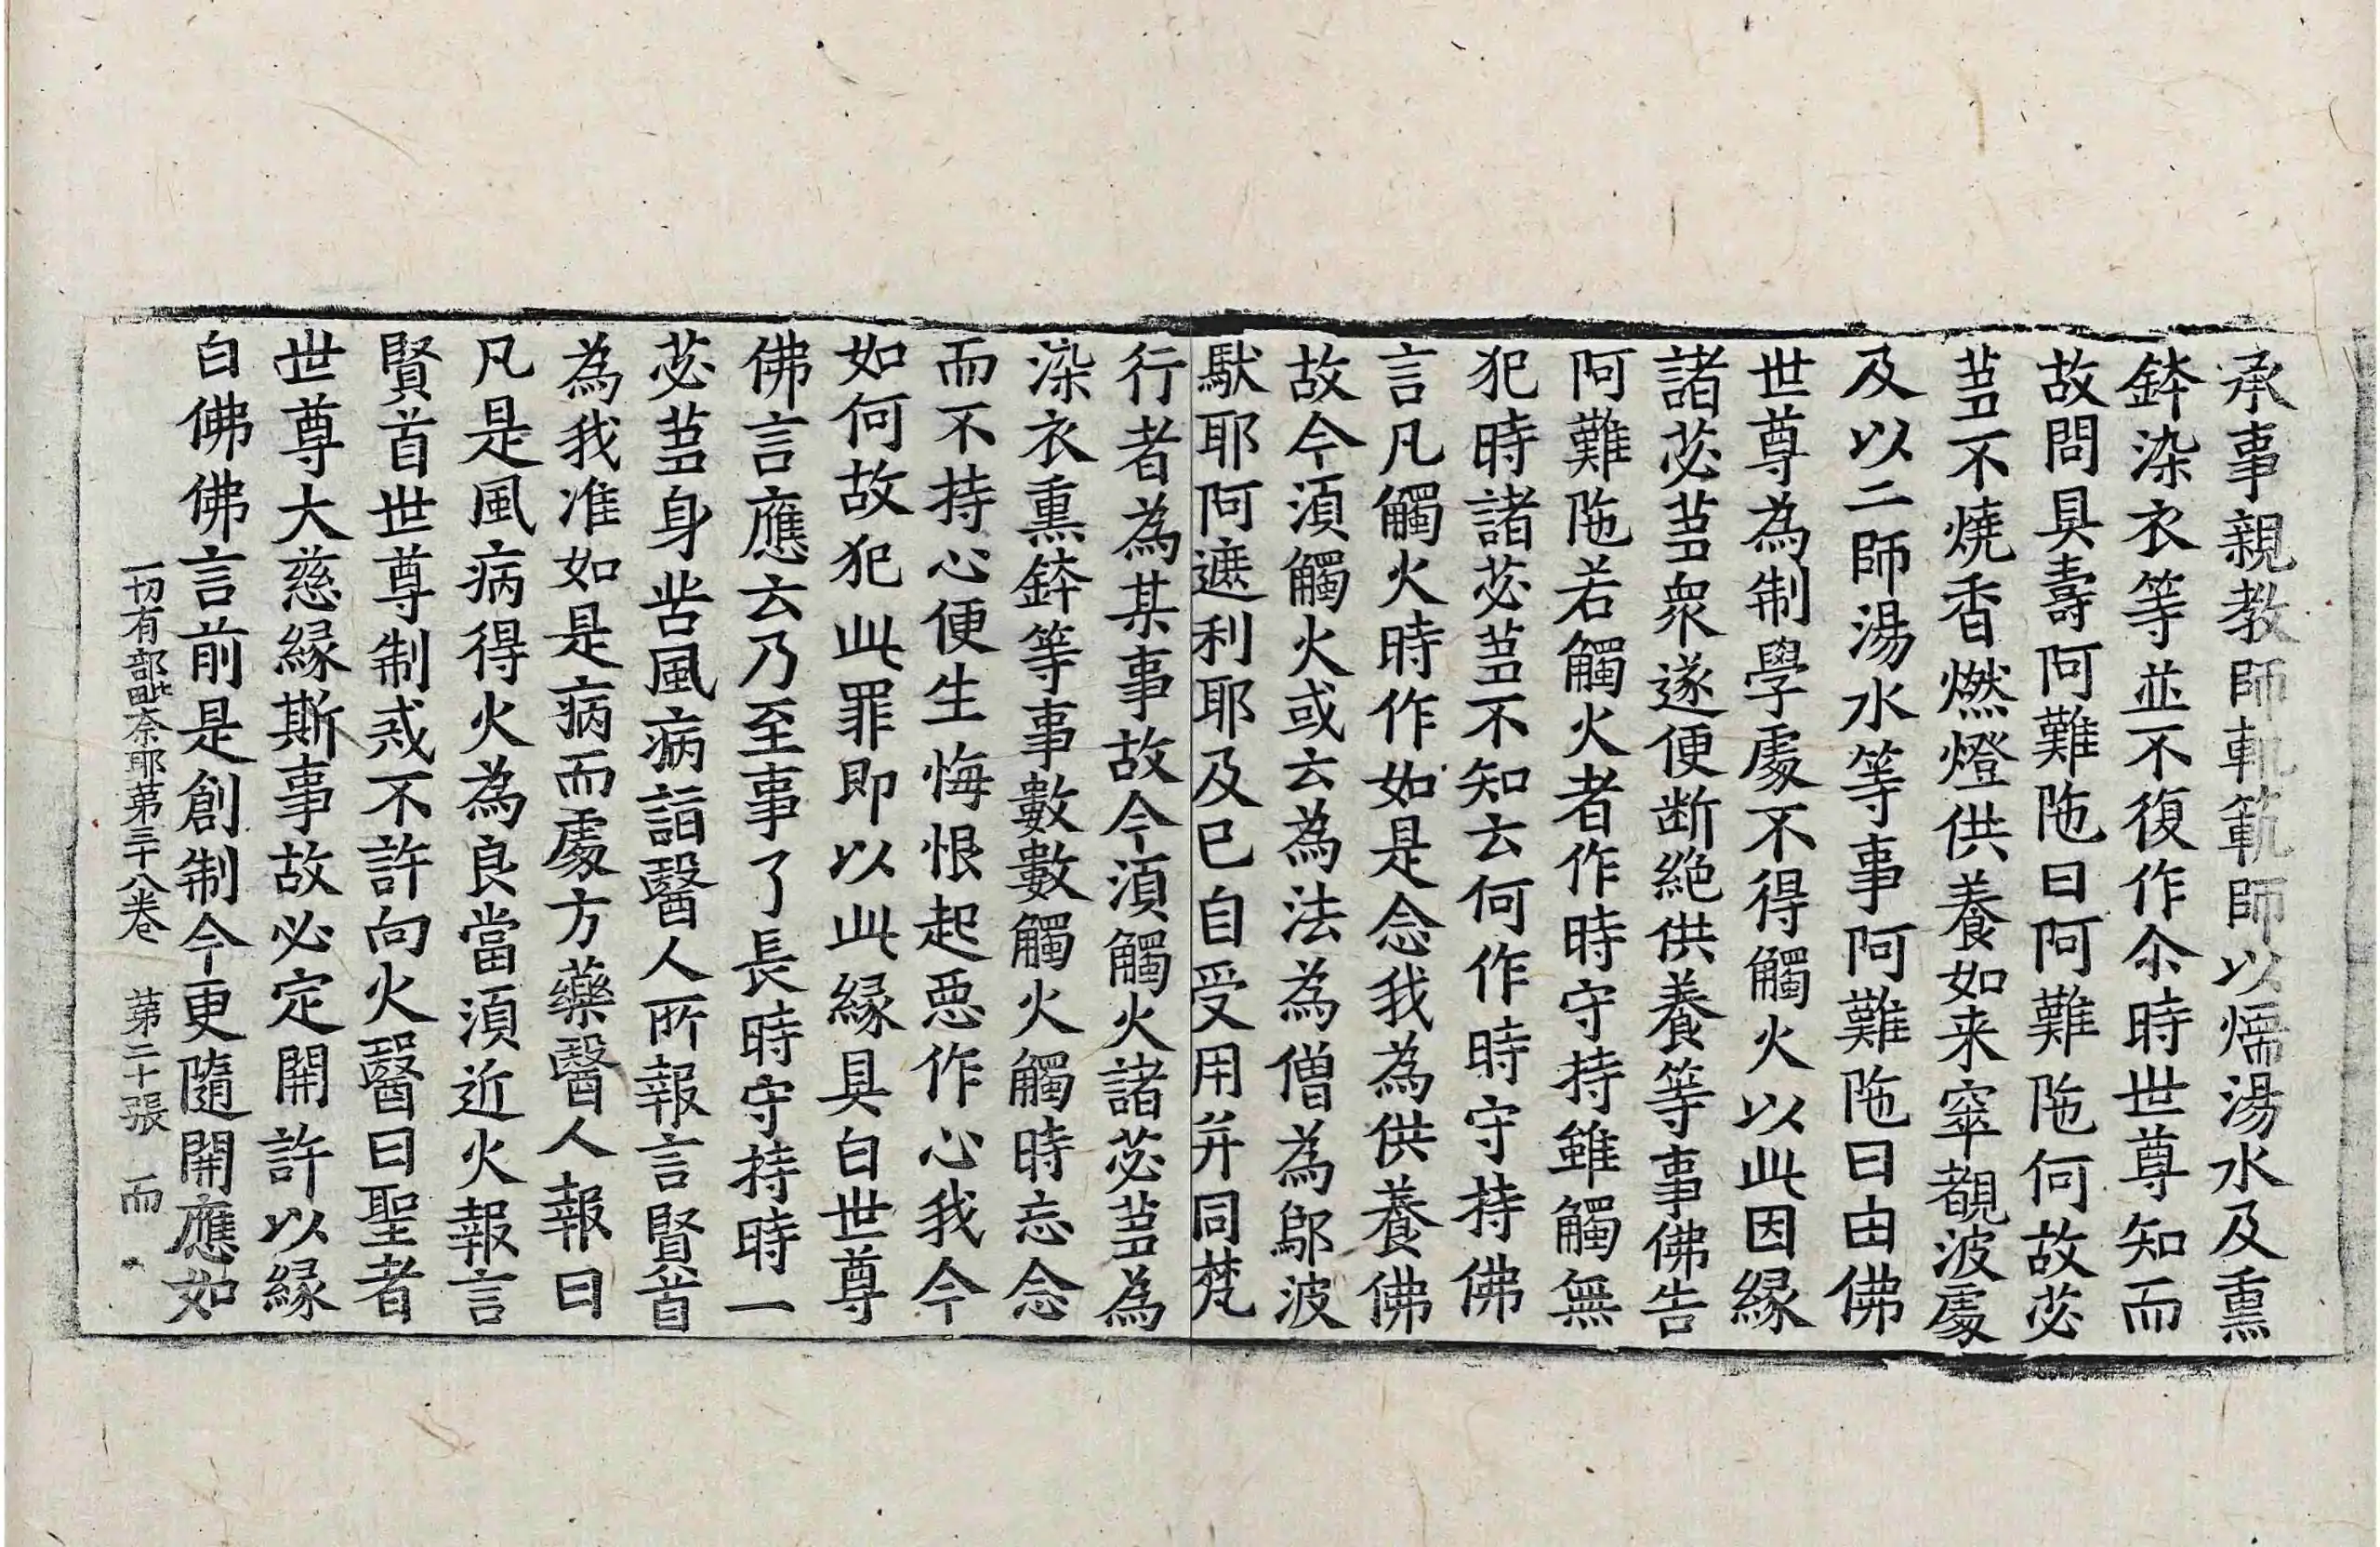 承事親教師軌範師以煗湯水及熏
鉢染衣等並不復作尒時世尊知而
故問具壽阿難陁曰阿難陁何故苾
蒭不燒香燃燈供養如来窣覩波處
及以二師湯水等事阿難陁曰由佛
世尊為制學處不得觸火以此因緣
諸苾蒭衆遂便断絶供養等事佛告
阿難陁若觸火者作時守持雖觸無
犯時諸苾蒭不知云何作時守持佛
言凡觸火時作如是念我為供養佛
故今湏觸火或云為法為僧為鄔波
馱耶阿遮利耶及已自受用并同梵
行者為某事故今湏觸火諸苾蒭為
染衣熏鉢等事數數觸火觸時忘念
而不持心便生悔恨起惡作心我今
如何故犯此罪即以此緣具白世尊
佛言應云乃至事了長時守持時一
苾蒭身苦風病詣醫人所報言賢首
為我准如是病而處方藥醫人報曰
凡是風病得火為良當湏近火報言
賢首世尊制戒不許向火醫曰聖者
世尊大慈緣斯事故必定開許以緣
白佛佛言前是創制今更隨開應如
一切有部毗奈耶苐三十八卷　苐二十張　而